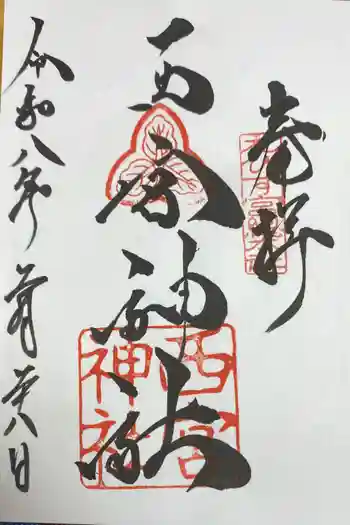 奉拝
西宮神社
西宮
神社
令和八年一月廿八日